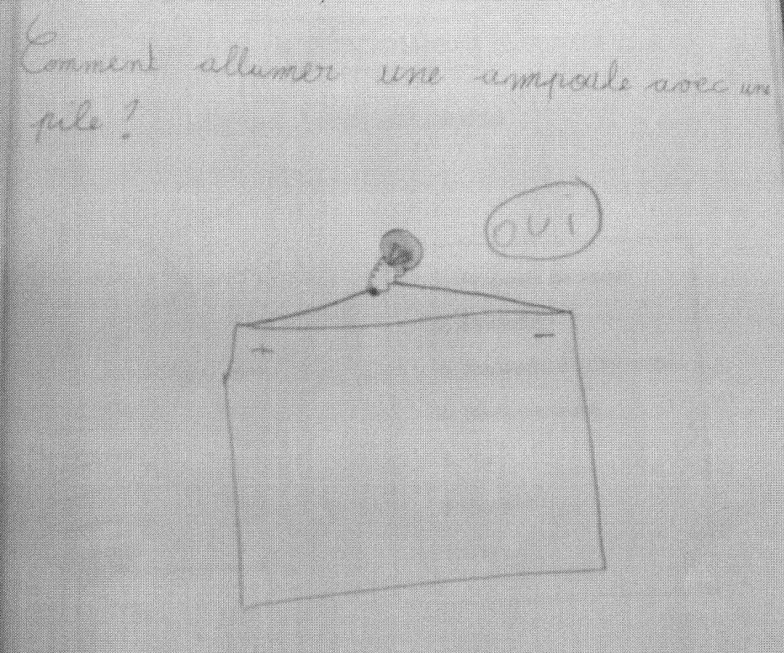 Comment allumer une ampoule avec une
pile ?
OUI
+ -